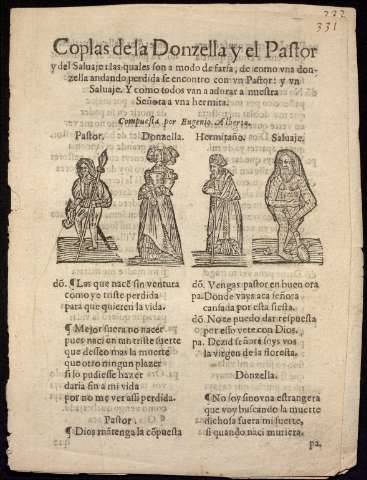 331
Coplas de la Donzella y el Pastor
y del Saluaje: las quales son a modo de farsa, de como vna don-
zella andando perdida se encontro con vn Pastor: y vn
Saluaje. Y como todos van a adorar a nuestra
Señora a vna hermita.
Compuesta por Eugenio Alberto.
Pastor. Donzella. Hermitaño. Saluaje.
dõ. ¶ Las que nacẽ sin ventura
como yo triste perdida
para que quieren la vida.
¶ Mejor fuera no nacer
pues naci en tan triste suerte
que desseo mas la muerte
que otro ningun plazer
si lo pudiesse hazer
daria fin a mi vida
por no me ver assi perdida.
Pastor
¶ Dios mãtenga la cõpuesta
dõ. Vengas pastor en buen ora
pa. Donde vays aca señora
cansada por esta siesta.
dõ. No te puedo dar respuesta
por esso vete con Dios.
pa. Dezid señora soys vos
la virgen de la floresta.
Donzella.
¶ No soy sino vna estrangera
que voy buscando la muerte
dichosa fuera mi suerte,
si quando naci muriera.
pa.